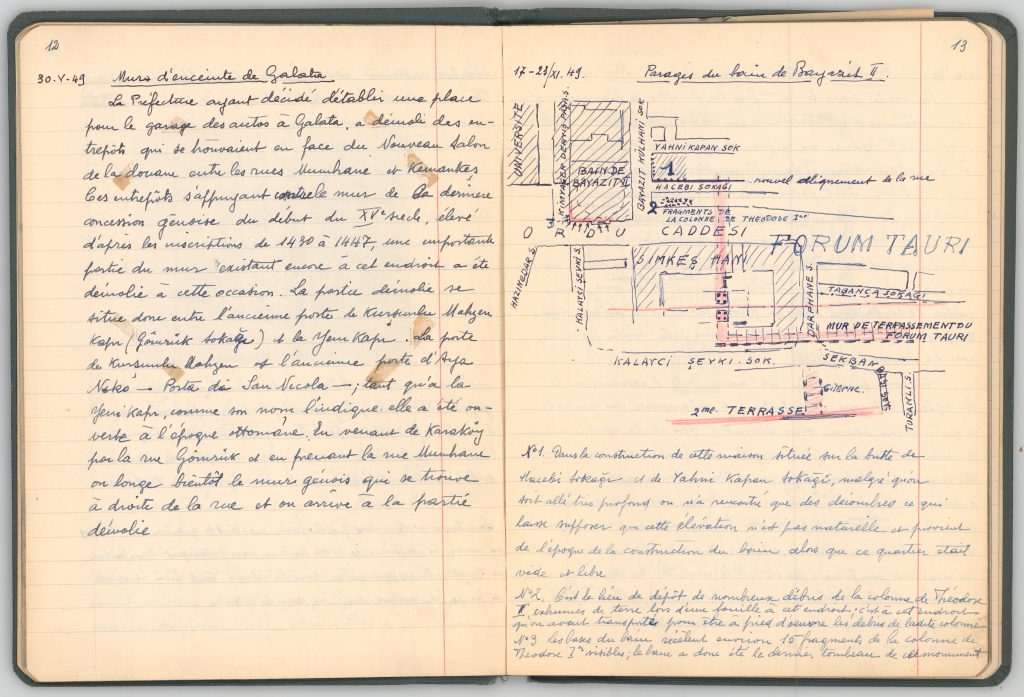 12
30·V·49 Murs d'enceinte de Galata
La Préfecture ayant décidé d'établir une place
pour le garage des autos à Galata, a démoli des en-
trepôts qui se trouvaient en face du Nouveau Salon
de la douane entre les rues Mumhane et Kemankeş
Ces entrepôts s'appuyant contre le mur de la dernière
concession génoise du début du XVe siècle, élevé
d'après les inscriptions de 1430 à 1447, une importante
partie du mur existant encore à cet endroit a été
démolie à cette occasion. La partie démolie se
situe donc entre l'ancienne porte de Kurşunlu Mahzen
Kapı (Gömrük Sokağı) et la Yeni Kapı. La porte
de Kurşunlu Mahzen est l'ancienne porte d'Aya
Niko — Porta di San Nicola —; tant qu'à la
Yeni Kapı, comme son nom l'indique, elle a été ou-
verte à l'époque ottomane. En venant de Karaköy
par la rue Gömrük et en prenant la rue Mumhane
on longe bientôt le mur génois qui se trouve
à droite de la rue et on arrive à la partie
démolie
13
17-23/XI.49. Parages du bain de Bayazit II.
UNIVERSITÉ
KIMYAGER DERVIŞ PAŞA S.
BAIN DE
BAYAZIT II
BAYAZIT KÜLHANI SOK
YAHNI KAPAN SOK
1
HACEBI SOKAĞI
nouvel alignement de la rue
2
FRAGMENTS DE
LA COLONNE DE THEODOSE Ier
3
ORDU CADDESI
FORUM TAURI
HAZINEDAR S.
KALAYCI ŞEVKI S.
SIMKEŞ HANI
DARPHANE S.
TAŞANCA SOKAĞI
MUR DE TERRASSEMENT DU
FORUM TAURI
KALAYCI ŞEVKI SOK.
SEKBAN
Citerne.
TURANLI S.
2me TERRASSE
No1. Dans la construction de cette maison située sur la butte de
Hacebi sokağı et de Yahni Kapan Sokağı, malgré qu'on
soit allé très profond on n'a rencontré que des décombres ce qui
laisse supposer que cette élévation n'est pas naturelle et provient
de l'époque de la construction du bain alors que ce quartier était
vide et libre
No2. C'est le lieu de dépôt de nombreux débris de la colonne de Theodose
exhumés de terre lors d'une fouille à cet endroit; c'est à cet endroit
qu'on avait transportés pour être à pied d'oeuvre les debris de ladite colonne
No3 Les bases du bain recèlent environ 15 fragments de la colonne de
Theodose Ier visibles; le bain a donc été le dernier tombeau de ce monument